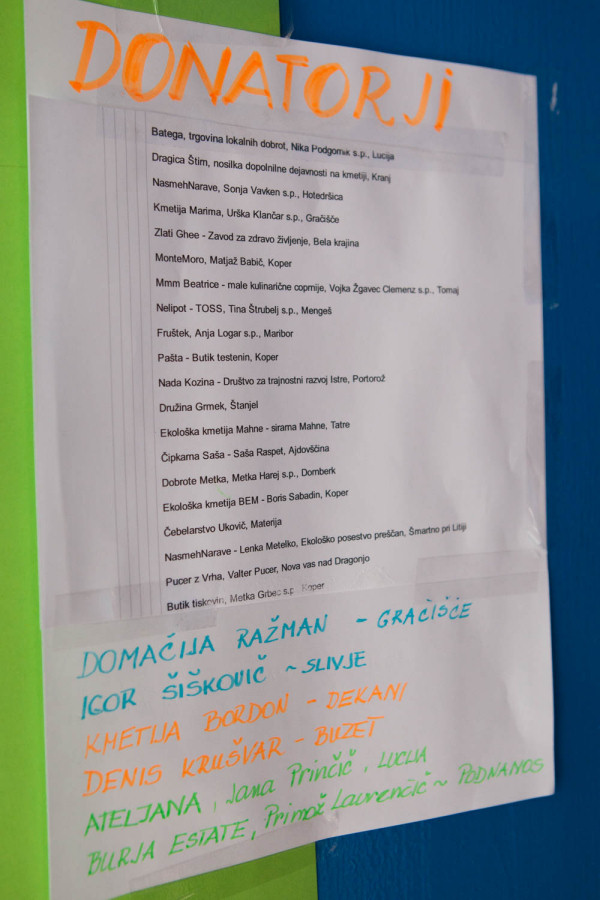 DONATORJI
Batega, trgovina lokalnih dobrot, Nika Podgornik s.p., Lucija
Dragica Štim, nosilka dopolnilne dejavnosti na kmetiji, Kranj
NasmehNarave, Sonja Vavken s.p., Hotedršica
Kmetija Marima, Urška Klančar s.p., Gračišče
Zlati Ghee - Zavod za zdravo življenje, Bela krajina
MonteMoro, Matjaž Babič, Koper
Mmm Beatrice - male kulinarične copmije, Vojka Žgavec Clemenz s.p., Tomaj
Nelipot - TOSS, Tina Štrubelj s.p., Mengeš
Fruštek, Anja Logar s.p., Maribor
Pašta - Butik testenin, Koper
Nada Kozina - Društvo za trajnostni razvoj Istre, Portorož
Družina Grmek, Štanjel
Ekološka kmetija Mahne - sirama Mahne, Tatre
Čipkarna Saša - Saša Raspet, Ajdovščina
Dobrote Metka, Metka Harej s.p., Domberk
Ekološka kmetija BEM - Boris Sabadin, Koper
Čebelarstvo Ukovič, Materija
NasmehNarave - Lenka Metelko, Ekološko posestvo preščan, Šmartno pri Litiji
Pucer z Vrha, Valter Pucer, Nova vas nad Dragonjo
Butik tiskovin, Metka Grbec s.p., Koper
DOMAČIJA RAŽMAN - GRAČIŠČE
IGOR ŠIŠKOVIČ ~ SLIVJE
KMETIJA BORDON - DEKANI
DENIS KRUŠVAR - BUZET
ATELJANA, Jana Prinčič, LUCIJA
BURJA ESTATE, Primož Lavrenčič ~ PODNANOS